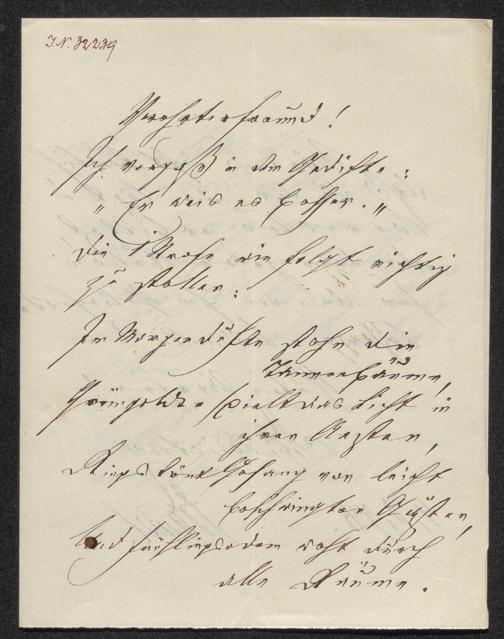 I.N. 32239
Verehrter Freund!
Ich vergaß in dem Gedichte:
"Er weis es besser."
die Strofe wie folgt richtig
zu stellen:
Im Morgendufte stehn die
Tannenbäume,
Grüngolden spielt das Licht in
ihren Aesten,
Rings tönt Gesang von leicht
beschwingten Gästen,
Und Frühlingsodem weht durch
alle Räume.